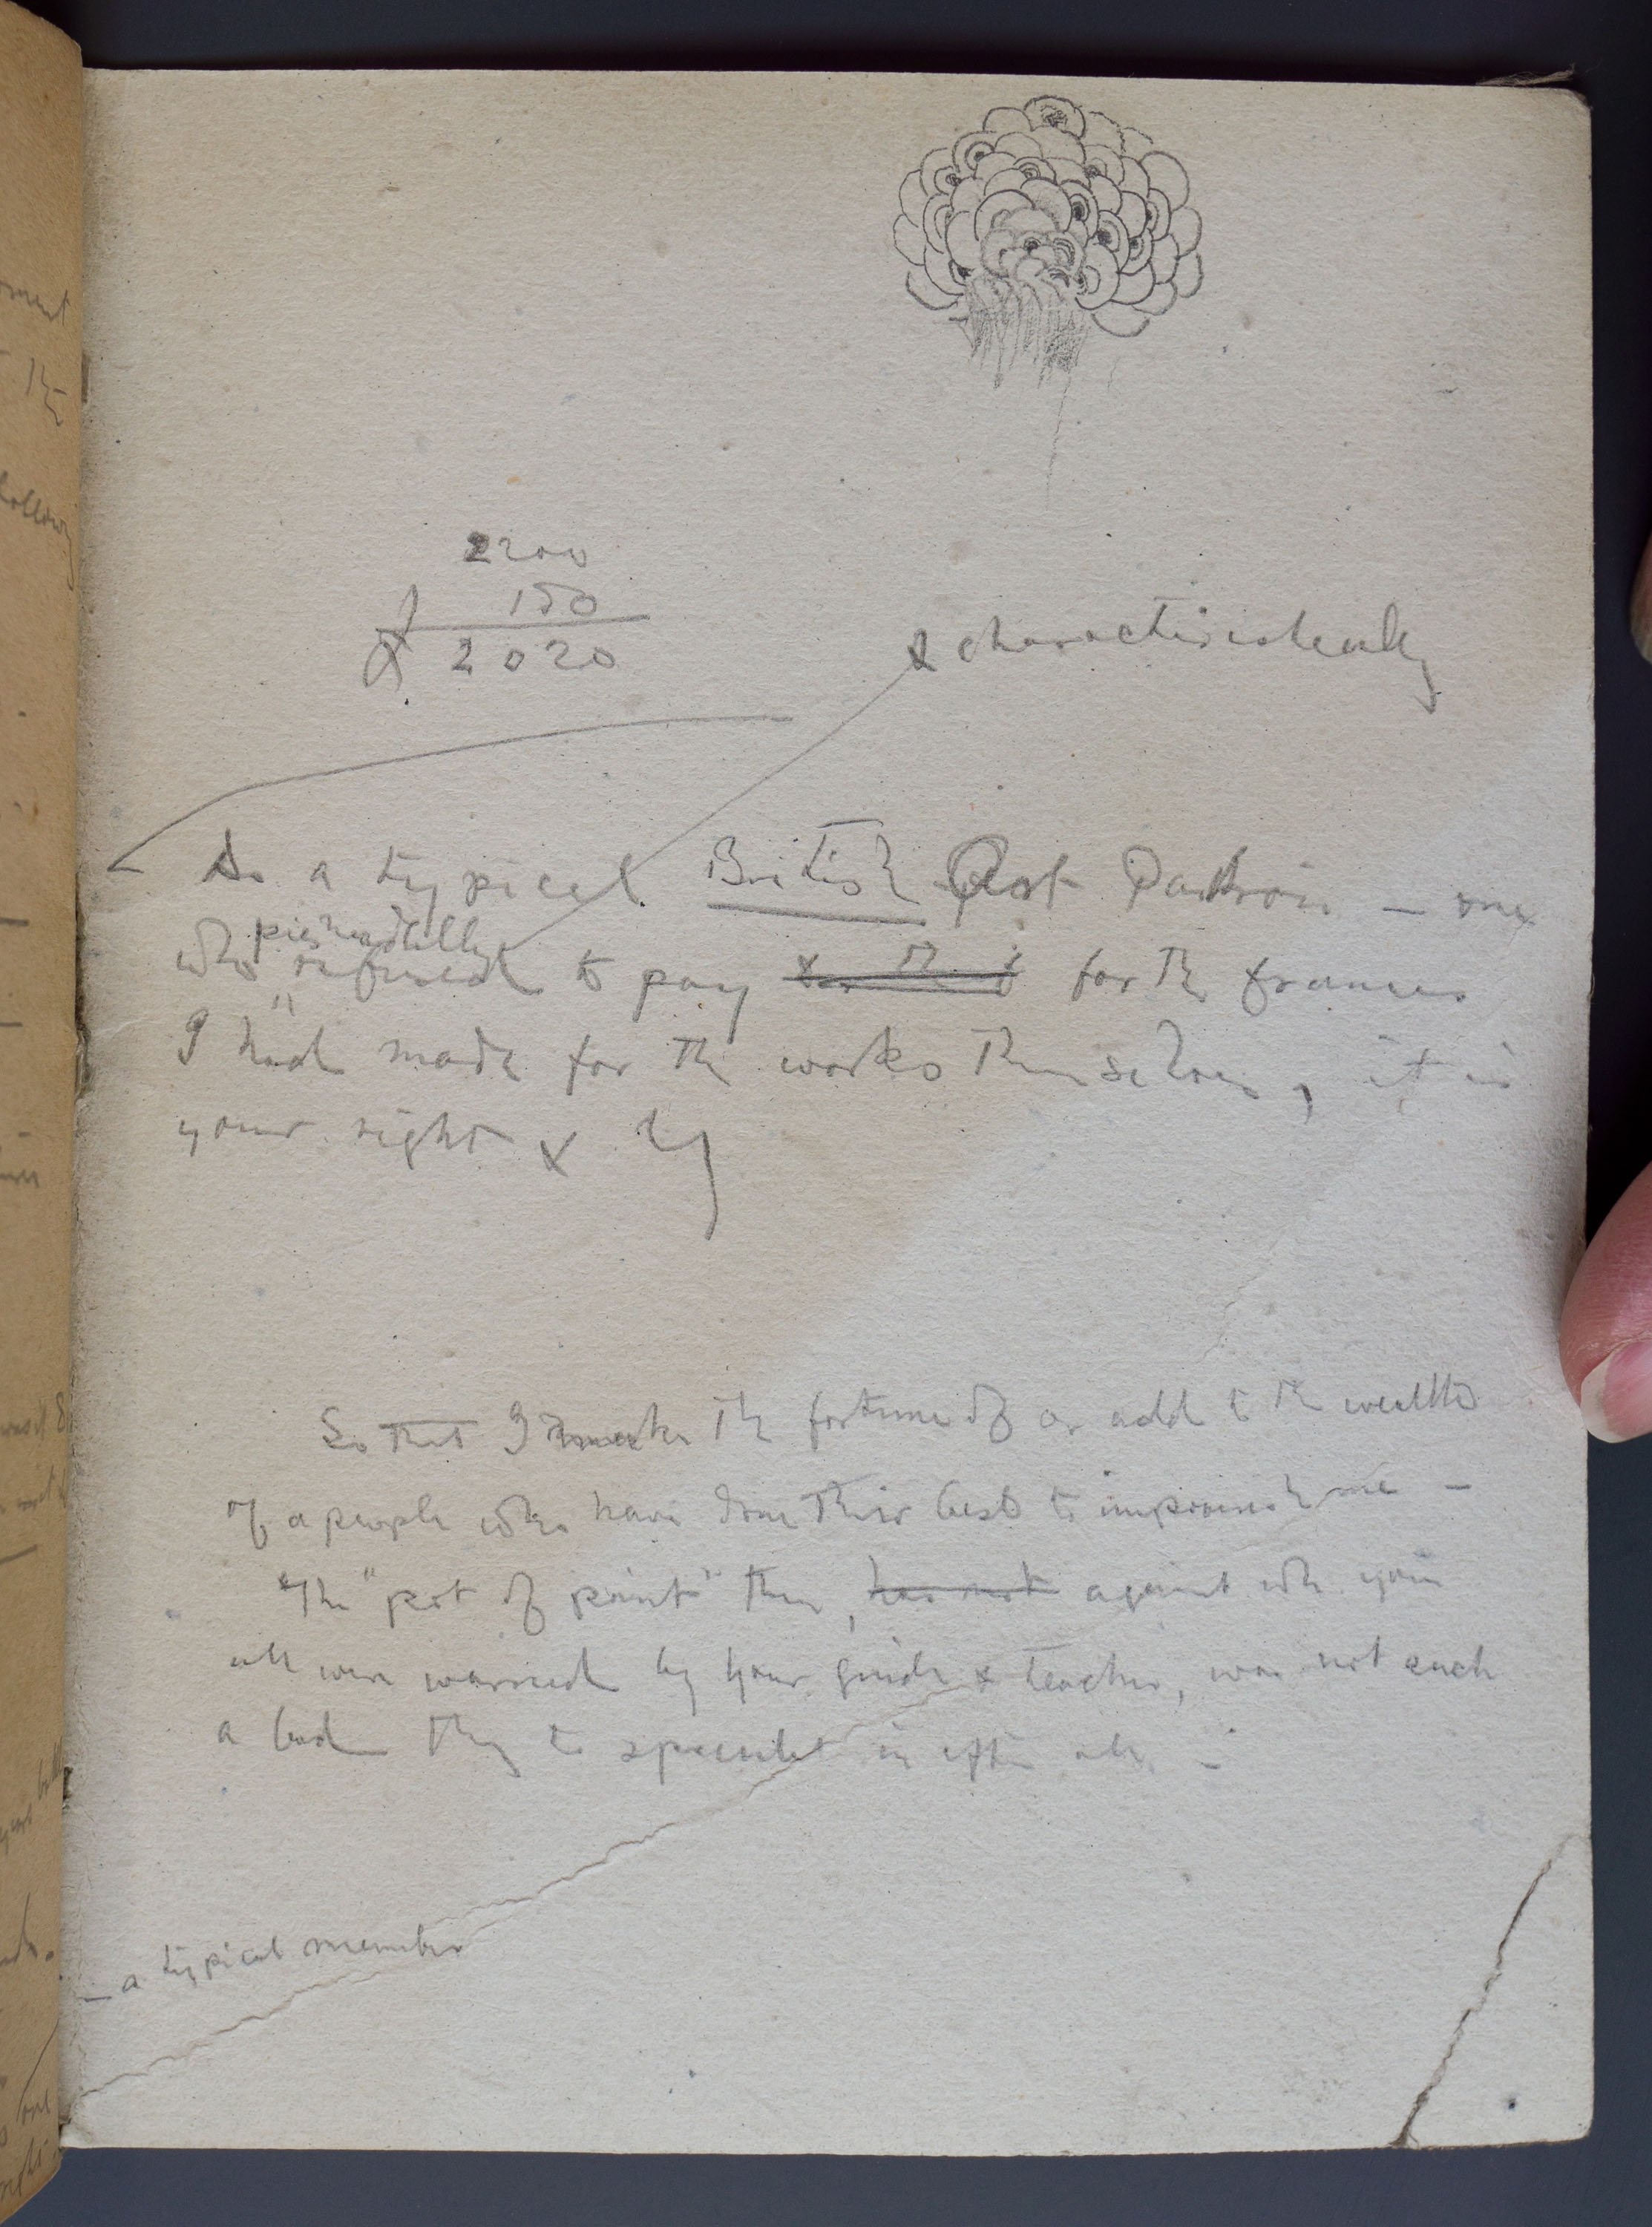 2200
150
2020
& characteristically
As a typical British Art Patron — one
pigheadedly
who refused to pay for th frames
I had made for th works themselves, it is
your right &
So that I make th fortune of or add to th wealth
of a people who have done their best to impoverish me —
"The "pot of paint" then, has not against wh you
all were warned by your guide & teacher, was not such
a bad thg to speculate in after all —
— a typical member